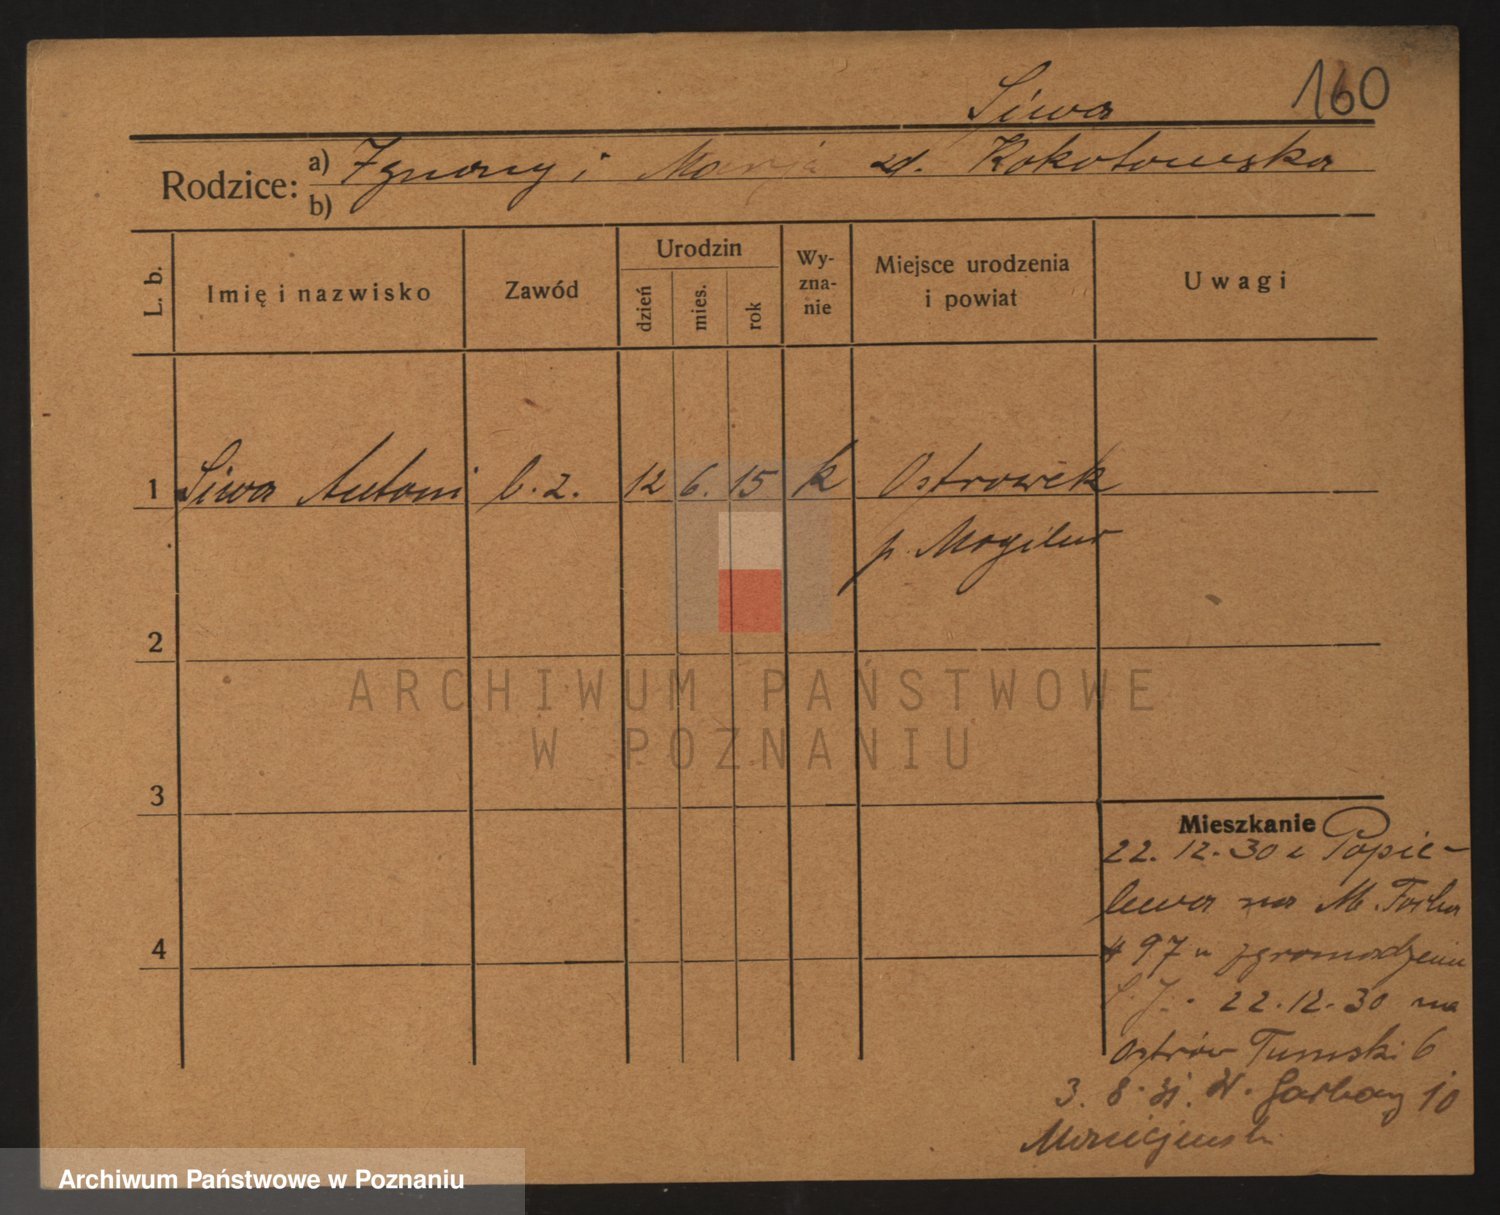 160
Siwa
Rodzice: a) Ignacy i Marja zd. Kokotowska
b)
L. b.
Imię i nazwisko
Zawód
Urodzin
dzień
mies.
rok
Wy-
zna-
nie
Miejsce urodzenia
i powiat
Uwagi
1 Siwa Antoni b. z. 12 6. 15 k Ostrowek
p. Mogilno
2
3
4
Mieszkanie
22. 12. 30 z Popie-
lewa na M. Garbar
# 97 u zgromadzenia
S. J. 22.12.30 na
Ostrów Tumski 6
3. 8. 31. W. Garbary 10
ARCHIWUM PAŃSTWOWE
W POZNANIU
Archiwum Państwowe w Poznaniu